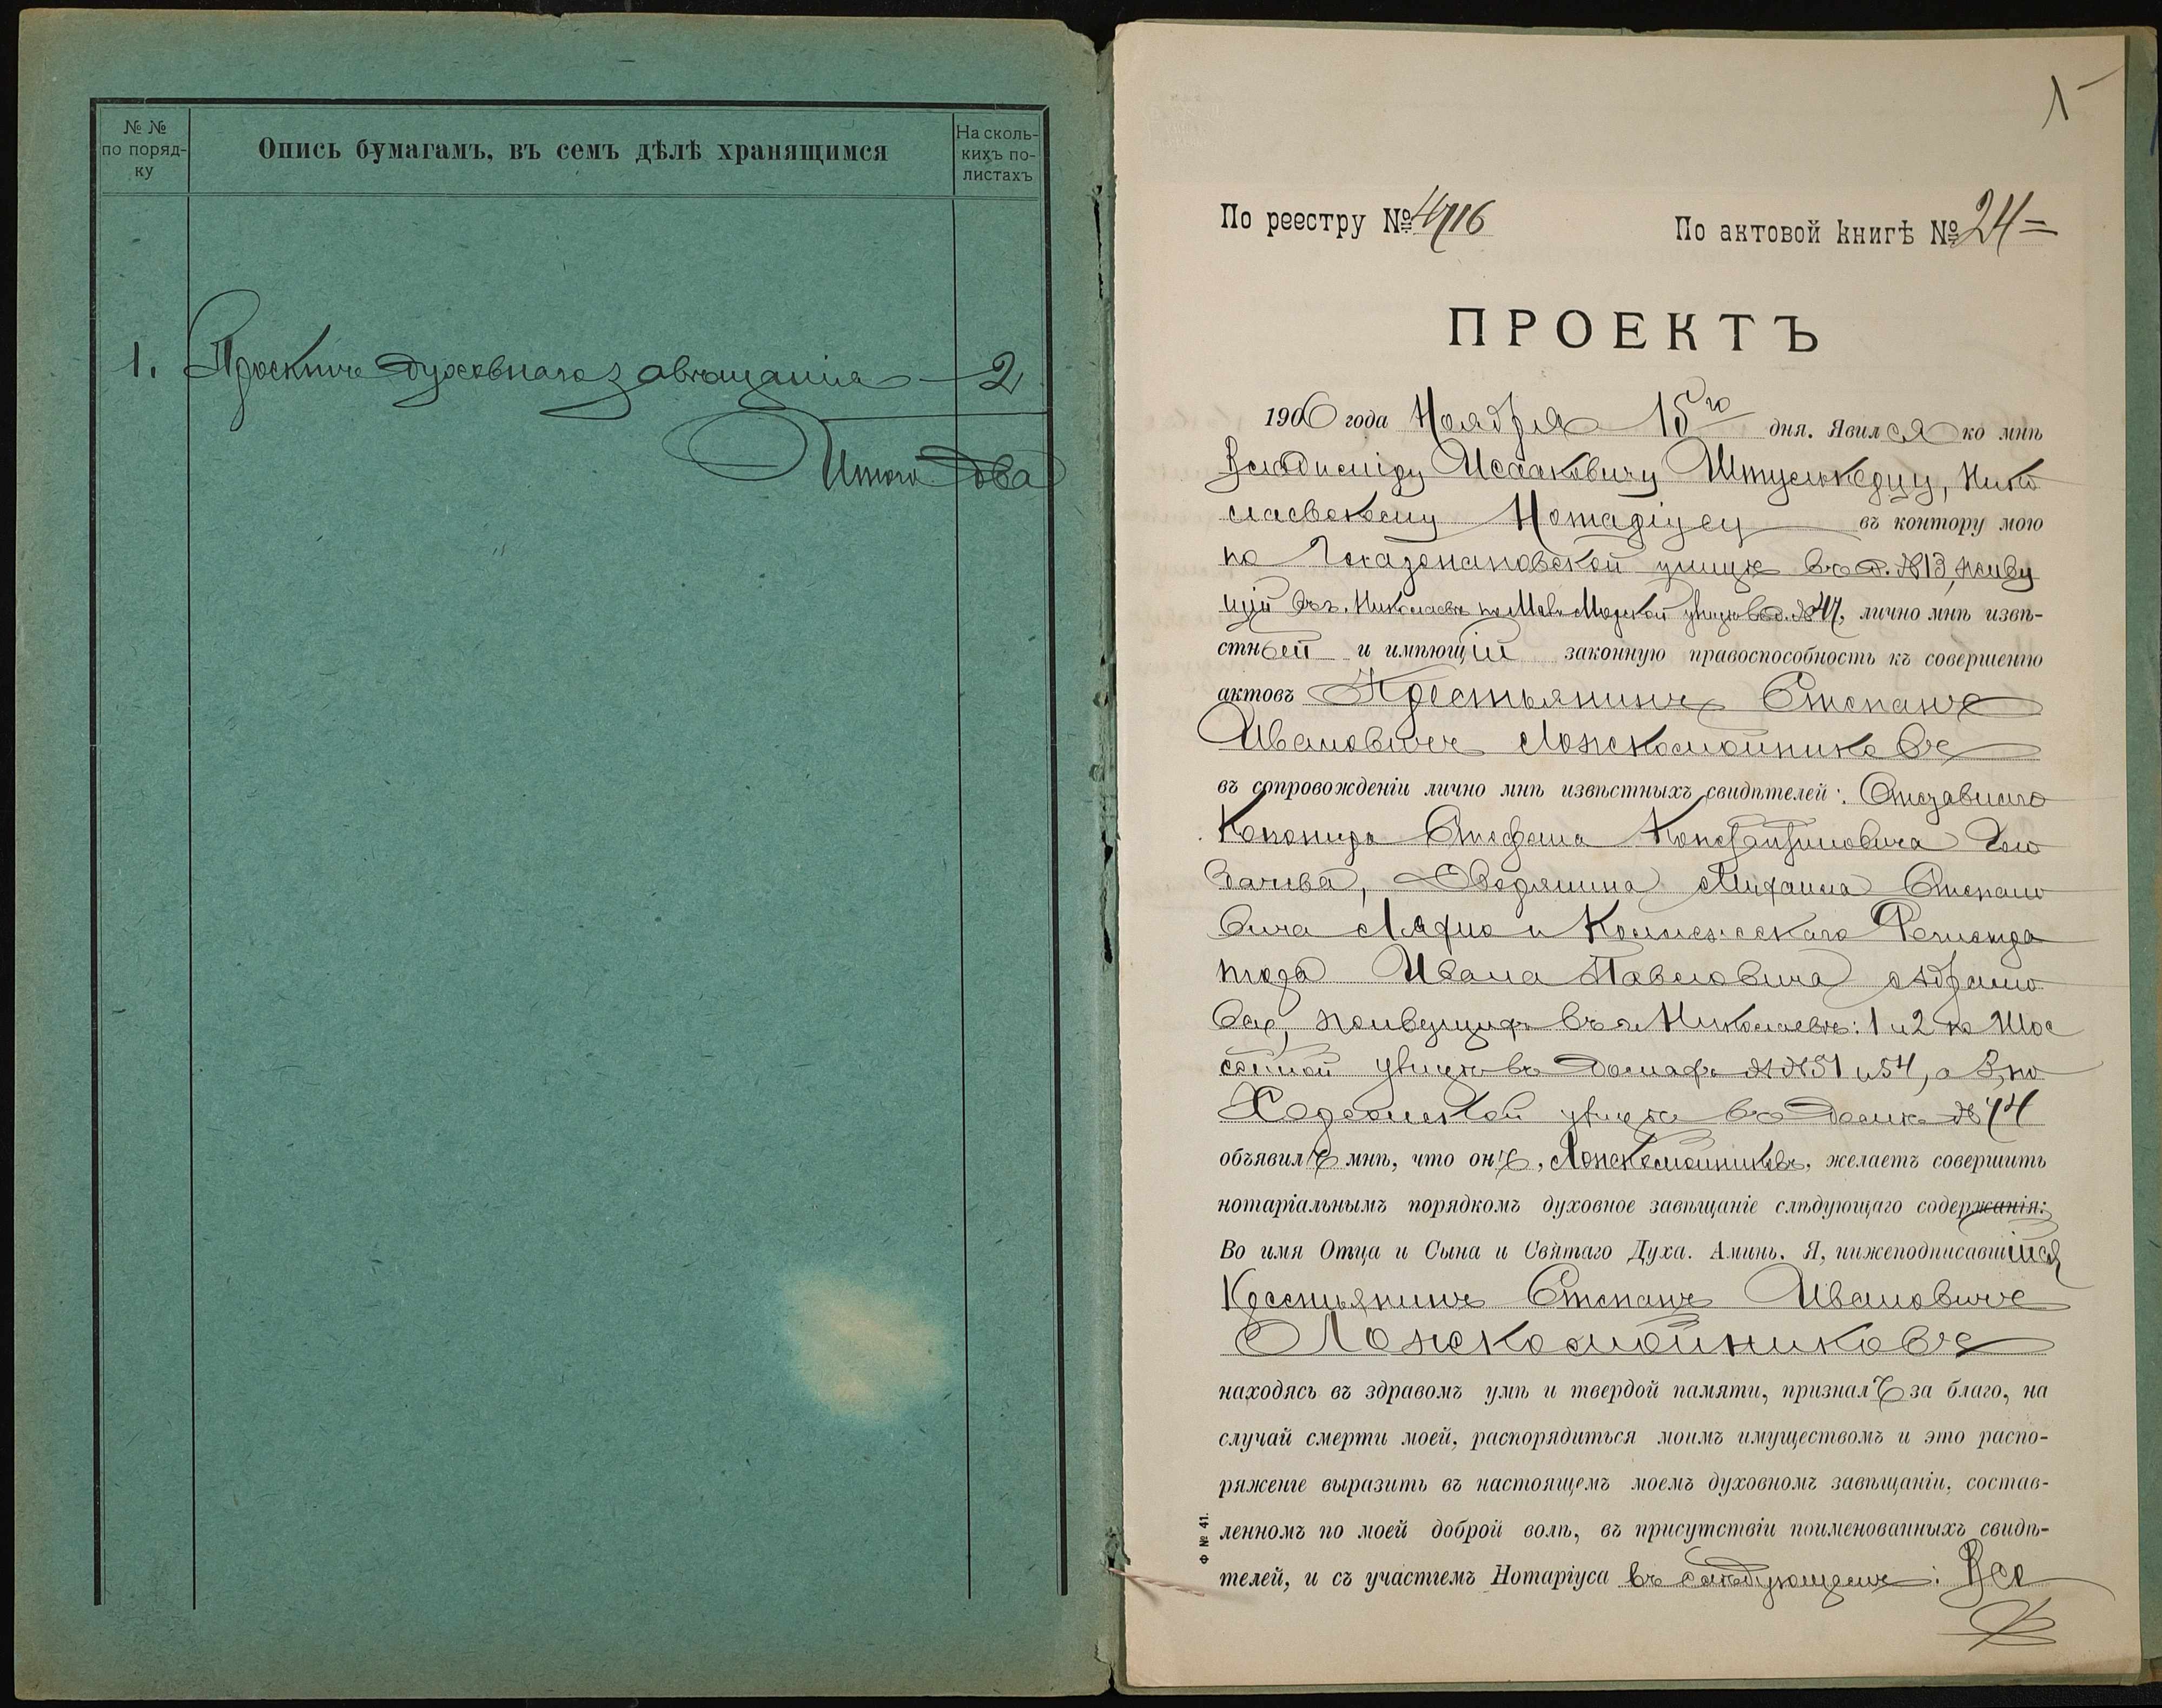 № № по порядку
Опись бумагамъ, въ семъ дѣлѣ хранящимся
На сколькихъ полистахъ
1. Проектъ духовнаго завѣщанія 2
Итого два
1
По реестру № 4716
По актовой книгѣ № 24
ПРОЕКТЪ
1906 года Ноября 15го дня. Явился ко мнѣ
Владиміру Исааковичу Штулькерцу, Нико
лаевскому Нотаріусу въ контору мою
по Глазенаповской улицѣ въ д. № 13, живу
щій въ г. Николаевѣ по Мало Морской улицѣ въ д. № 47, лично мнѣ извѣ-
стный и имѣющій законную правоспособность къ совершенію
актовъ Крестьянинъ Степанъ
Ивановичъ Ложкомойниковъ
въ сопровожденіи лично мнѣ извѣстныхъ свидѣтелей: Отставного
Стефана Константиновича
Дворянина Михаила Степано
вича и Коллежскаго Регистра
тора Ивана Павловича Абрамо
ва, живущихъ въ г. Николаевѣ: 1 и 2 по
улицѣ въ домахъ №№ 51 и 54, а 3, по
Херсонской улицѣ въ домѣ № 44
объявилъ мнѣ, что онъ, Ложкомойниковъ, желаетъ совершить
нотаріальнымъ порядкомъ духовное завѣщаніе слѣдующаго содержанія:
Во имя Отца и Сына и Святаго Духа. Аминь. Я, нижеподписавшійся
Крестьянинъ Степанъ Ивановичъ
Ложкомойниковъ
находясь въ здравомъ умѣ и твердой памяти, призналъ за благо, на
случай смерти моей, распорядиться моимъ имуществомъ и это распо-
ряженіе выразить въ настоящемъ моемъ духовномъ завѣщаніи, состав-
ленномъ по моей доброй волѣ, въ присутствіи поименованныхъ свидѣ-
телей, и съ участіемъ Нотаріуса въ слѣдующемъ: Все
Ф № 41.